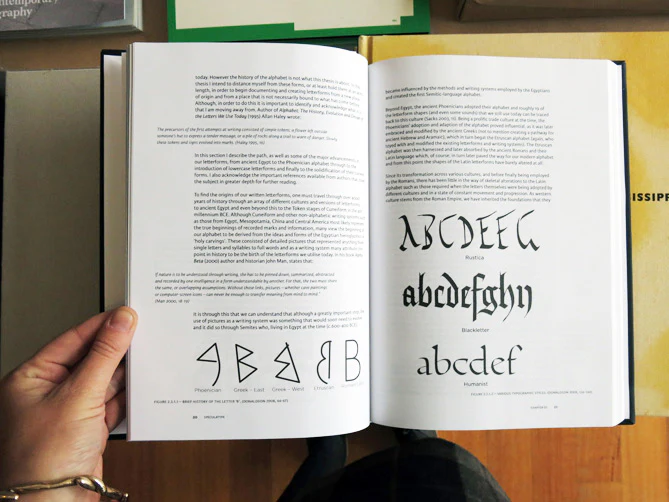 ntemporary
graphy
today. However the history of the alphabet is not what this thesis is about. In this
thesis I intend to distance myself from these forms, or at least hold them at arm's
length, in order to begin documenting and creating letterforms from a new
of origin and from a place that is not necessarily bound to what has come before.
Although, in order to do this it is important to identify and acknowledge what
that I am moving away from. Author of Alphabet: The History, Evolution and
the Letters We Use Today (1995) Allan Haley wrote:
The precursors of the first attempts at writing consisted of simple tokens: a flower left outside
someone's hut to express a tender message, or a pile of rocks along a trail to warn of danger. Slowly
these tokens and signs evolved into marks. (Haley 1995, 15)
In this section I describe the path, as well as some of the major advancements
our letterforms, from ancient Egypt to the Phoenician alphabet; through to the
introduction of lowercase letters and finally to the solidification of their
forms. I also acknowledge the important references available from authors
the subject in greater depth for further reading.
To find the origins of our written letterforms, one must travel through over
years of history through an array of different cultures and versions of letterforms
to ancient Egypt and even beyond this to the Token stages of Cuneiform in the
millennium BCE. Although Cuneiform and other non-alphabetic writing systems such
as those from Egypt, Mesopotamia, China and Central America most likely
the true beginnings of recorded marks and information, many view the beginnings
our alphabet to be derived from the ideas and forms of the Egyptian hieroglyphs or
'holy carvings'. These consisted of detailed pictures that represented anything from
single letters and syllables to full words and as a writing system many attribute
point in history to be the birth of the letterforms we utilise today. In his book Alpha
Beta (2000) author and historian John Man, states that:
If nature is to be understood through writing, she has to be pinned down, summarised, abstracted
and recorded by one intelligence in a form understandable by another. For that, the two must share
the same, or overlapping assumptions. Without these links, pictures – whether cave paintings
or computer-screen icons – can never be enough to transfer meaning from mind to mind.
(Man 2000,
It is through this that we can understand that although a greatly important
use of pictures as a writing system was something that would soon
and it did so through Semites who, living in Egypt at the time
Phoenician
Greek - East
Greek - West
Etruscan
B
FIGURE 2.2.1.1 – BRIEF HISTORY OF THE LETTER 'B',
20
SPECULATYPE
became influenced by the methods and writing systems employed by the Egyptians
and created the first Semitic language alphabet.
Beyond Egypt, the ancient Phoenicians adopted their alphabet and roughly 19 of
the letterform shapes (and even some sounds) that we still use today can be traced
back to this culture (Sacks 2003, 15). Being a prolific trade culture at the time, the
Phoenicians' adoption and adaption of the alphabet proved influential, as it was later
embraced and modified by the ancient Greeks (not to mention creating a pathway to
ancient Hebrew and Aramaic), which in turn begat the Etruscan alphabet (again, who
played with and modified the existing letterforms and writing systems). The Etruscan
alphabet was then harnessed and later absorbed by the ancient Romans and their
Latin language which, of course, in turn later paved the way for our modern alphabet
and from this point the shapes of the Latin letterforms have barely altered at all.
Since its transformation across various cultures, and before finally being employed
by the Romans, there has been little in the way of radical alterations to the Latin
alphabet such as those required when the letters themselves were being adopted by
different cultures and in a state of constant movement and progression. As western
culture stems from the Roman Empire, we have inherited the foundations that they
ABCDEFG
Rustica
abcdefghij
Blackletter
abcdef
Humanist
ISSIPP